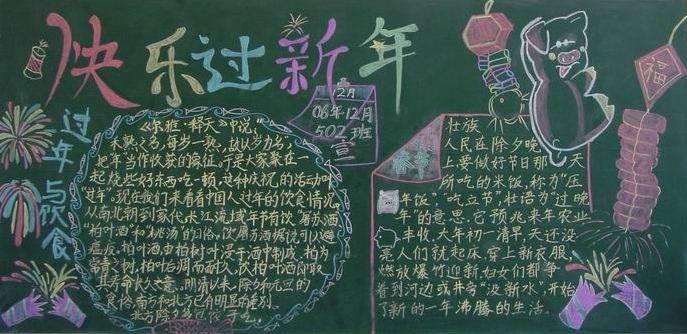 快乐过新年
福
2月
06年12月
502班
宣
过年与饮食
《尔雅·释天》中说,"
禾熟之名,每岁一熟,故以岁为名,
把年当作收获的象征。于是大家聚在一
起烧些好东西吃一顿,这种庆祝的活动叫
"过年"。现在我们来看看中国人过年的饮食情况,
从南北朝到宋代,长江流域年节有饮"屠苏酒"
"柏叶酒"和"桃汤"的习俗,饮屠苏酒据说可以避
瘟疫,柏叶酒由柏树叶浸于酒中制成,柏为
常青之树,柏树后凋而耐久,饮柏叶酒即取
其寿命长久之意。明清以来,除夕和元旦的
食俗,南方和北方已有明显的差别。
北方除夕多包饺子吃。
春节
壮族
人民在除夕晚
上要做好节日那一天
所吃的米饭,称为"压
年饭","吃立节",壮语为"过晚
年"的意思,它预兆来年农业
丰收,大年初一清早,天还没
亮人们就起床,穿上新衣服,
燃放爆竹迎新,妇女们都争
着到河边或井旁"汲新水",开始
了新的一年沸腾的生活。